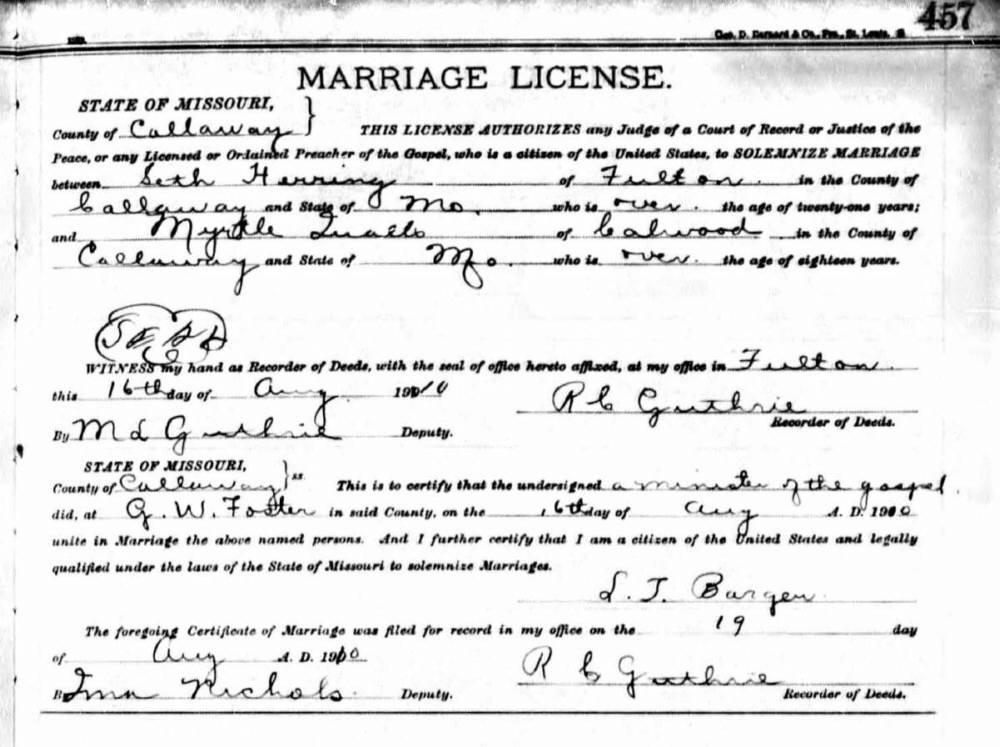 457
Geo. D. Barnard & Co., Prs., St. Louis,
MARRIAGE LICENSE.
STATE OF MISSOURI,
County of Callaway } THIS LICENSE AUTHORIZES any Judge of a Court of Record or Justice of the
Peace, or any Licensed or Ordained Preacher of the Gospel, who is a citizen of the United States, to SOLEMNIZE MARRIAGE
between Seth Herring of Fulton in the County of
Callaway and State of Mo. who is over the age of twenty-one years;
and Myrtle Qualls of Calwood in the County of
Callaway and State of Mo. who is over the age of eighteen years.
SEAL
WITNESS my hand as Recorder of Deeds, with the seal of office hereto affixed, at my office in Fulton
this 16th day of Aug 1910
R C Guthrie
Recorder of Deeds.
By M L Guthrie Deputy.
STATE OF MISSOURI,
County of Callaway } ss This is to certify that the undersigned a minister of the gospel
did, at G. W. Foster in said County, on the 16th day of Aug A. D. 1910
unite in Marriage the above named persons. And I further certify that I am a citizen of the United States and legally
qualified under the laws of the State of Missouri to solemnize Marriages.
L. T. Barger
The foregoing Certificate of Marriage was filed for record in my office on the 19 day
of Aug A. D. 1910
R C Guthrie
By Nichols Deputy. Recorder of Deeds.